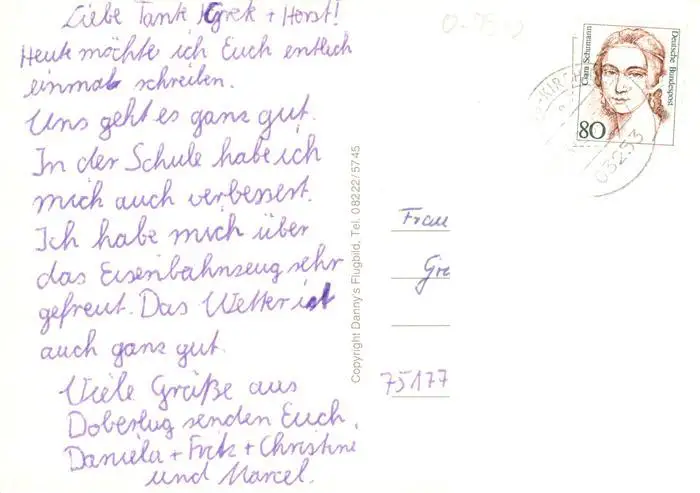 Liebe Tante Grek + Horst!
Heute möchte ich Euch entlich
einmal schreiben.
Uns geht es ganz gut.
In der Schule habe ich
mich auch verbessert.
Ich habe mich über
das Eisenbahnzeug sehr
gefreut. Das Wetter ist
auch ganz gut.
Viele Grüße aus
Doberlug senden Euch,
Daniela + Fritz + Christine
und Marcel.
Copyright Danny's Flugbild, Tel. 08222/5745
Clara Schumann
Deutsche Bundespost
80
03253
Frau
Gre
75177